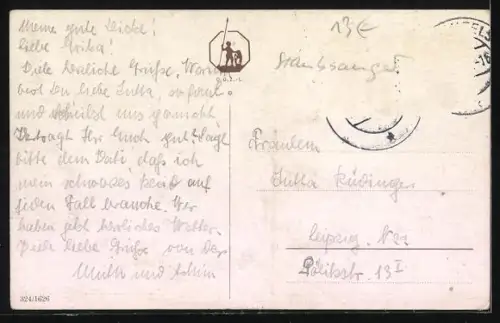 Meine gute Liska!
liebe Gritta!
Viele herzliche Grüße. Warum
bist Du liebe Jutta, so faul
und schreibst uns garnicht.
Vertragt Ihr Euch gut? Sagt
bitte dem Vati, dass ich
mein schwarzes Kleid auf
jeden Fall brauche. Wir
haben jetzt herrliches Wetter.
Viele liebe Grüße von Der
Mutti und
324/1626
13€
Staubsauger
Fräulein
Jutta Rüdinger
Leipzig. N22
Pölitzstr. 13 I